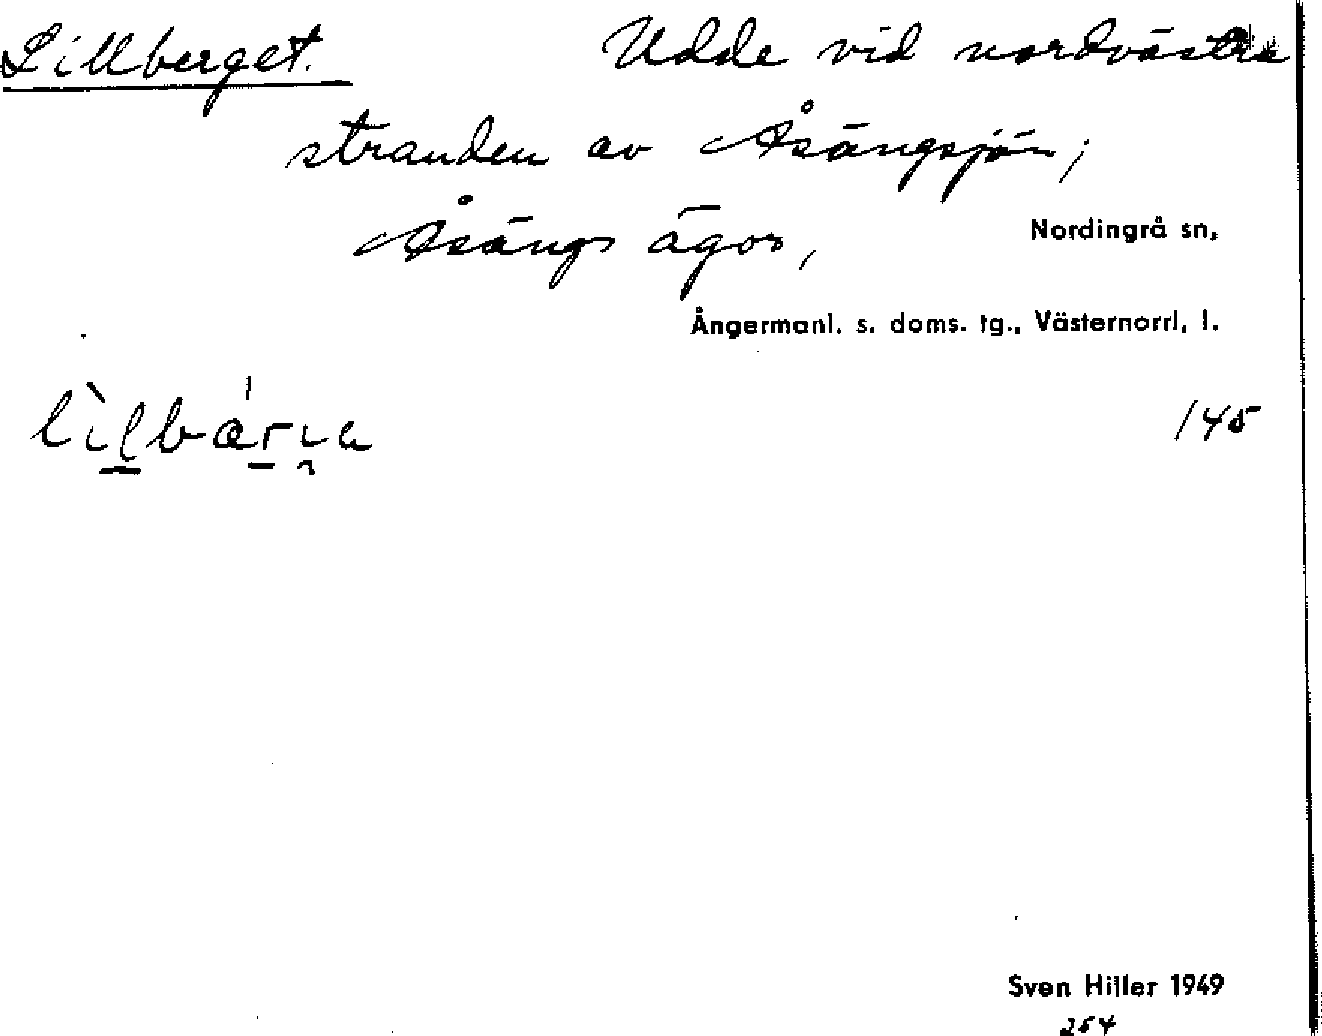 Lillberget. Udde vid nordvästra
stranden av Åsängsjön;
Åsängs ägor, Nordingrå sn,
Ångermanl. s. doms. tg., Västernorrl, l.
145
Sven Hiller 1949
254